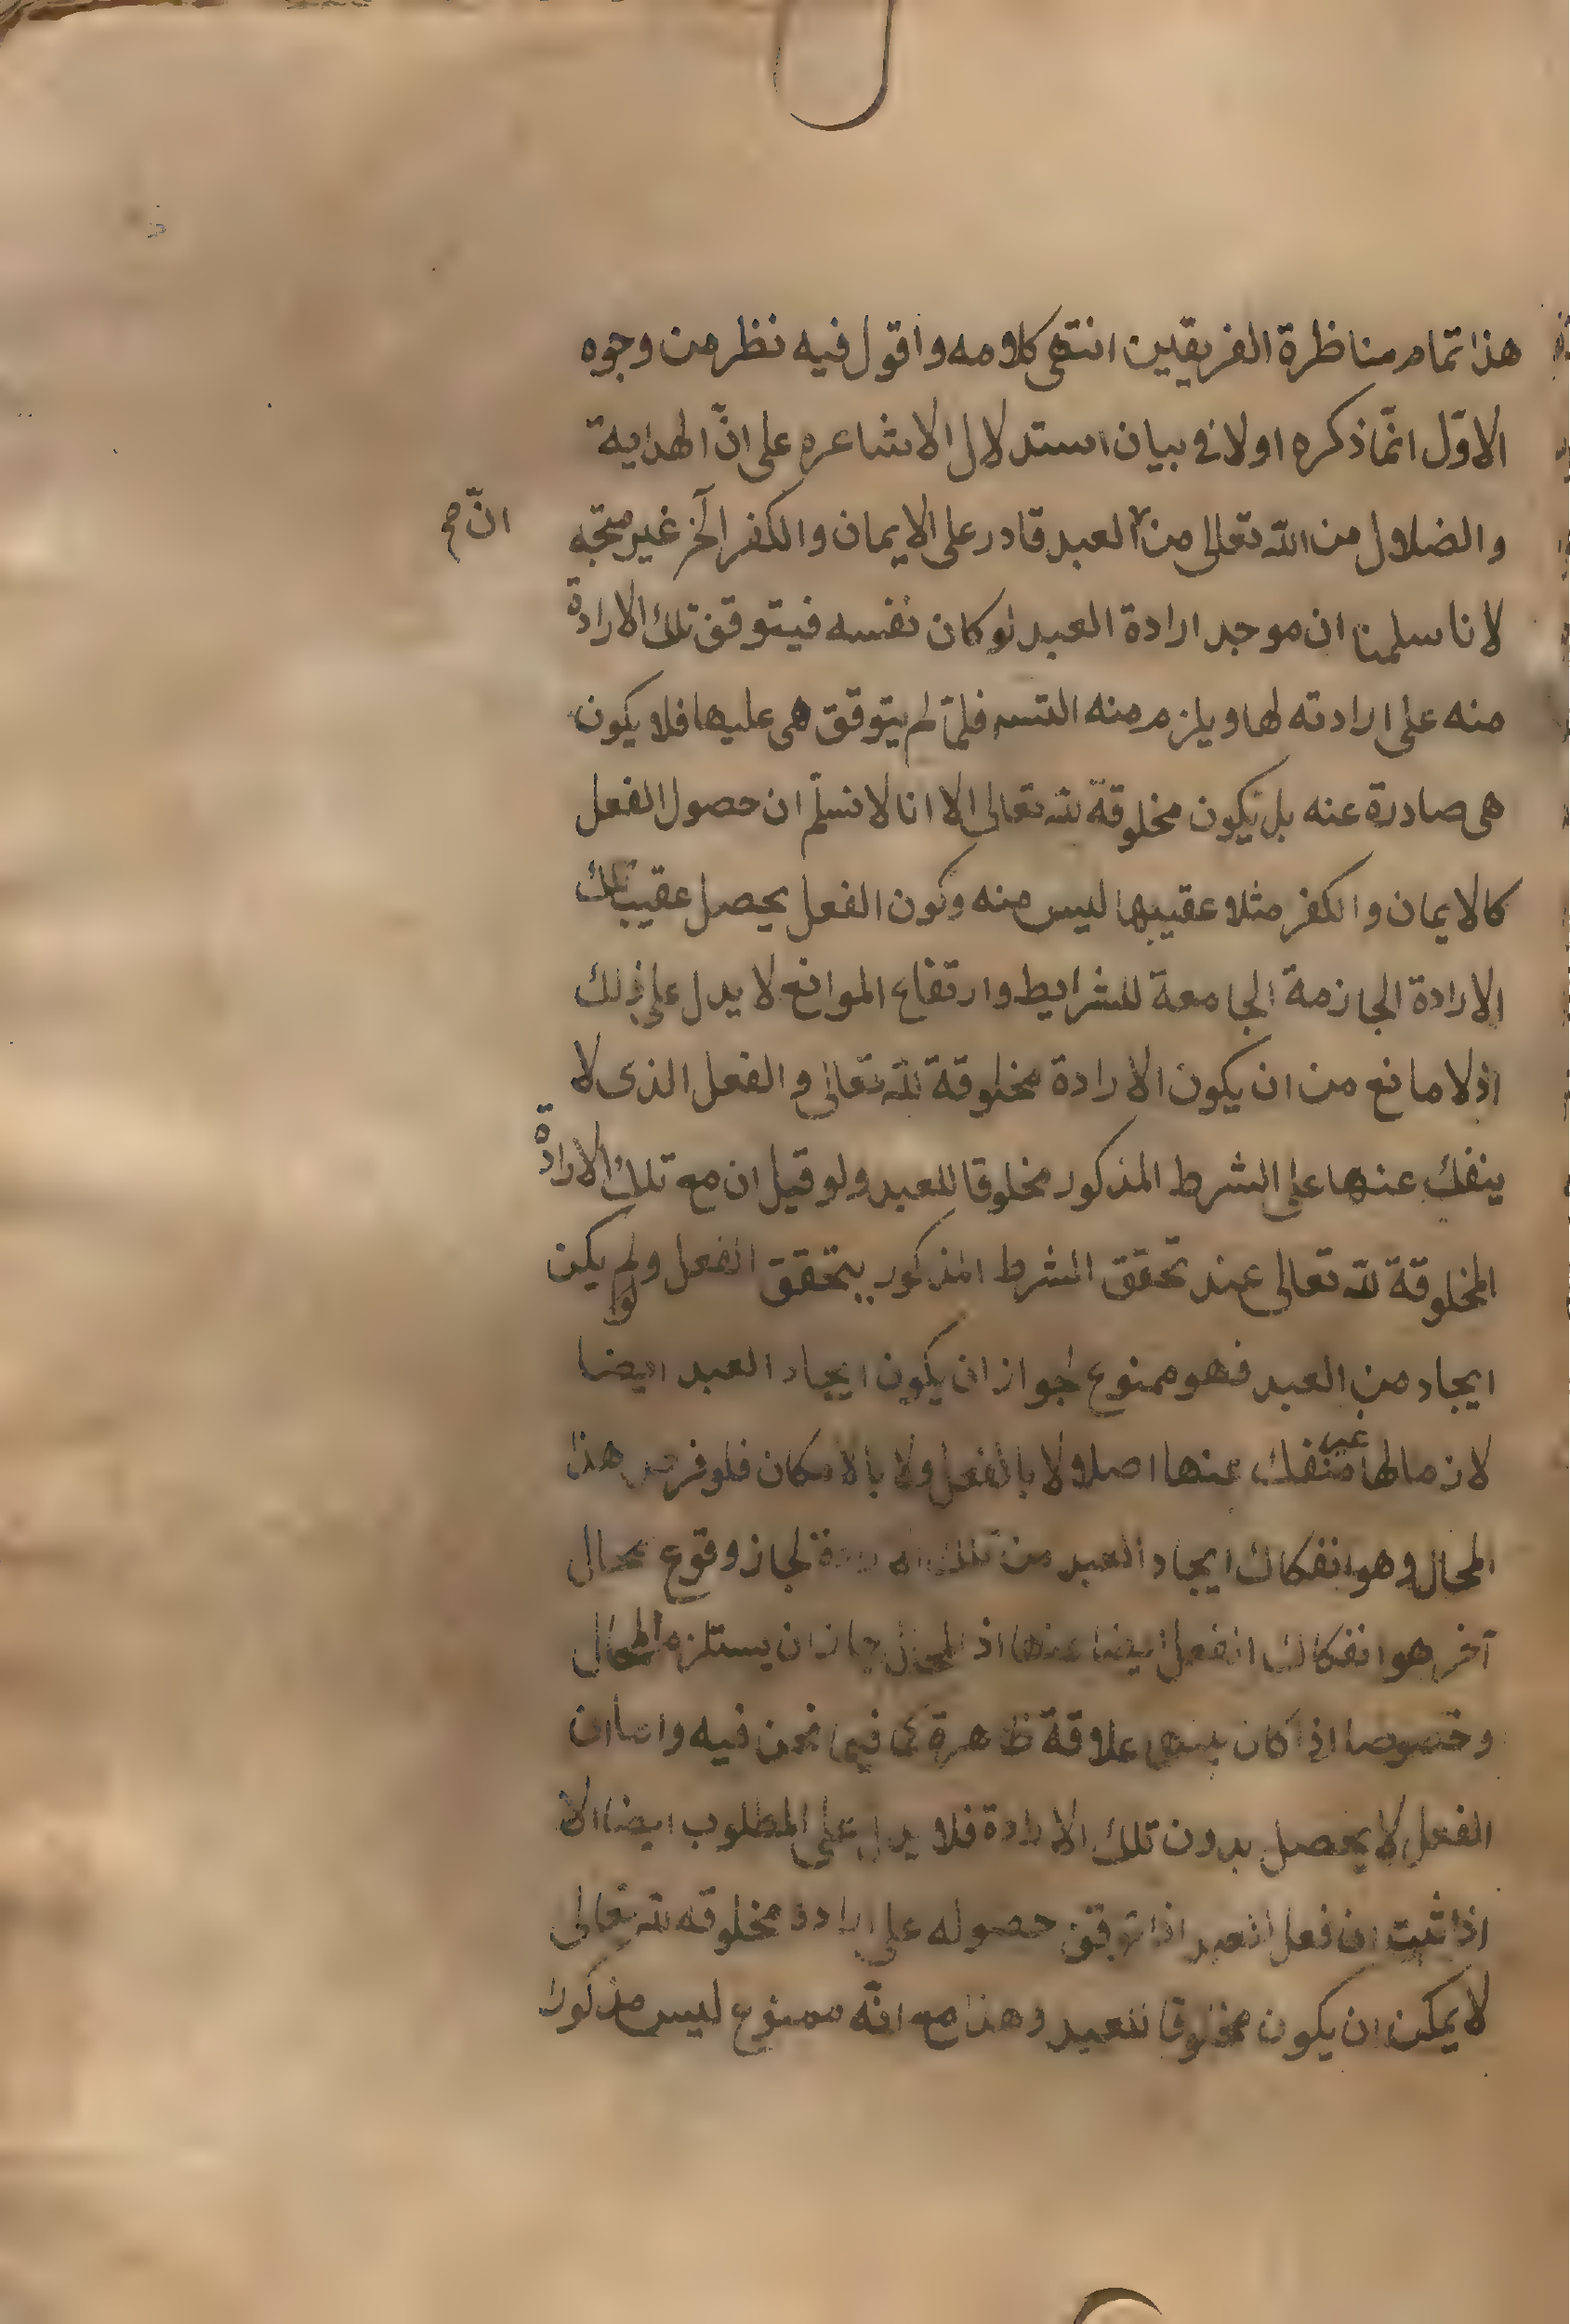 هذا تمام مناظرة الفريقين انتهى كلامه واقول فيه نظر من وجوه
الاوّل انّما ذكره اولا فى بيان استدلال الاشاعره على انّ الهداية
والضلال من الله تعالى من العبد قادر على الايمان والكفر الخ غير متجه
انّ صح
لانا سلمنا ان موجد ارادة العبد لو كان نفسه فيتوقف تلك الارادة
منه على ارادته لها ويلزم منه التسـ فلمّا لم يتوقق هى عليها فلا يكون
هى صادرة عنه بل يكون مخلوقة لله تعالى الا انا لا نسلّم ان حصول الفعل
كالايمان والكفر مثلا عقيبها ليس منه وكون الفعل يحصل عقيب تلك
الارادة الجازمة الجامعة للشرايط وارتفاع الموانع لا يدل على ذلك
اذ لا مانع من ان يكون الارادة مخلوقة لله تعالى والفعل الذى لا
ينفك عنها على الشرط المذكور مخلوقا للعبد ولو قيل ان مع تلك الارادة
المخلوقة لله تعالى عند تحقق الشرط المذكور يتحقق الفعل ولو لم يكن
ايجاد من العبد فهو ممنوع لجواز ان يكون ايجاد العبد ايضا
لازما لها غير منفك عنها اصلا ولا بالفعل ولا بالامكان فلو فرض هذا
المحال وهو انفكاك ايجاد العبد من تلك الارادة لجاز وقوع محال
آخر هو انفكاك الفعل ايضا عنها اذ المحال جاز ان يستلزم المحال
وخصوصا اذا كان بينهما علاقة ظاهرة كما فيما نحن فيه واما ان
الفعل لا يحصل بدون تلك الارادة فلا يدل على المطلوب ايضا الا
اذا ثبت ان فعل العبد اذا توقف حصوله على ارادة مخلوقه لله تعالى
لا يمكن ان يكون مخلوقا للعبد وهذا مع انّه ممنوع ليس مذكورا